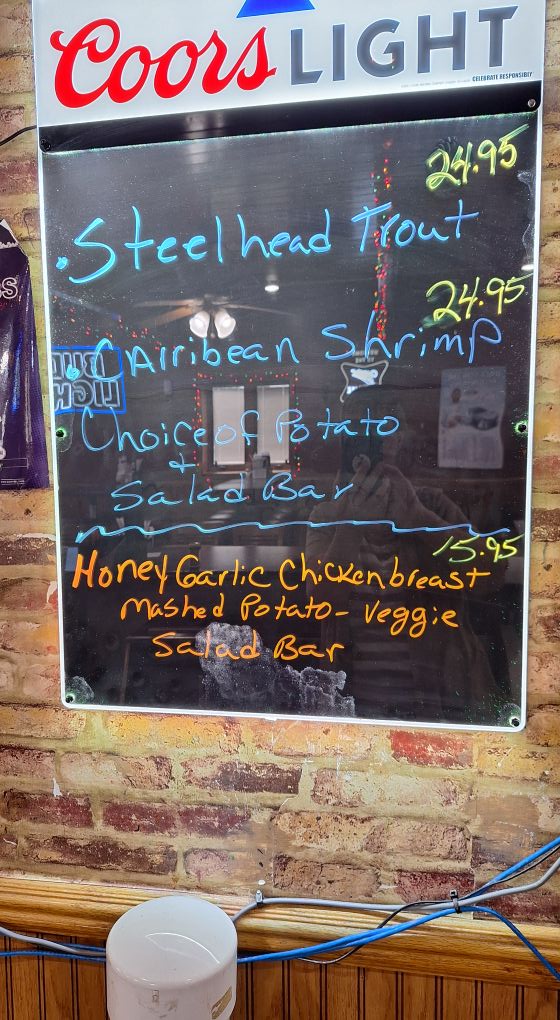 Coors LIGHT
CELEBRATE RESPONSIBLY
24.95
. Steelhead Trout
24.95
. CAIribean Shrimp
Choice of Potato
+
Salad Bar
15.95
Honey Garlic Chicken breast
mashed Potato - Veggie
Salad Bar